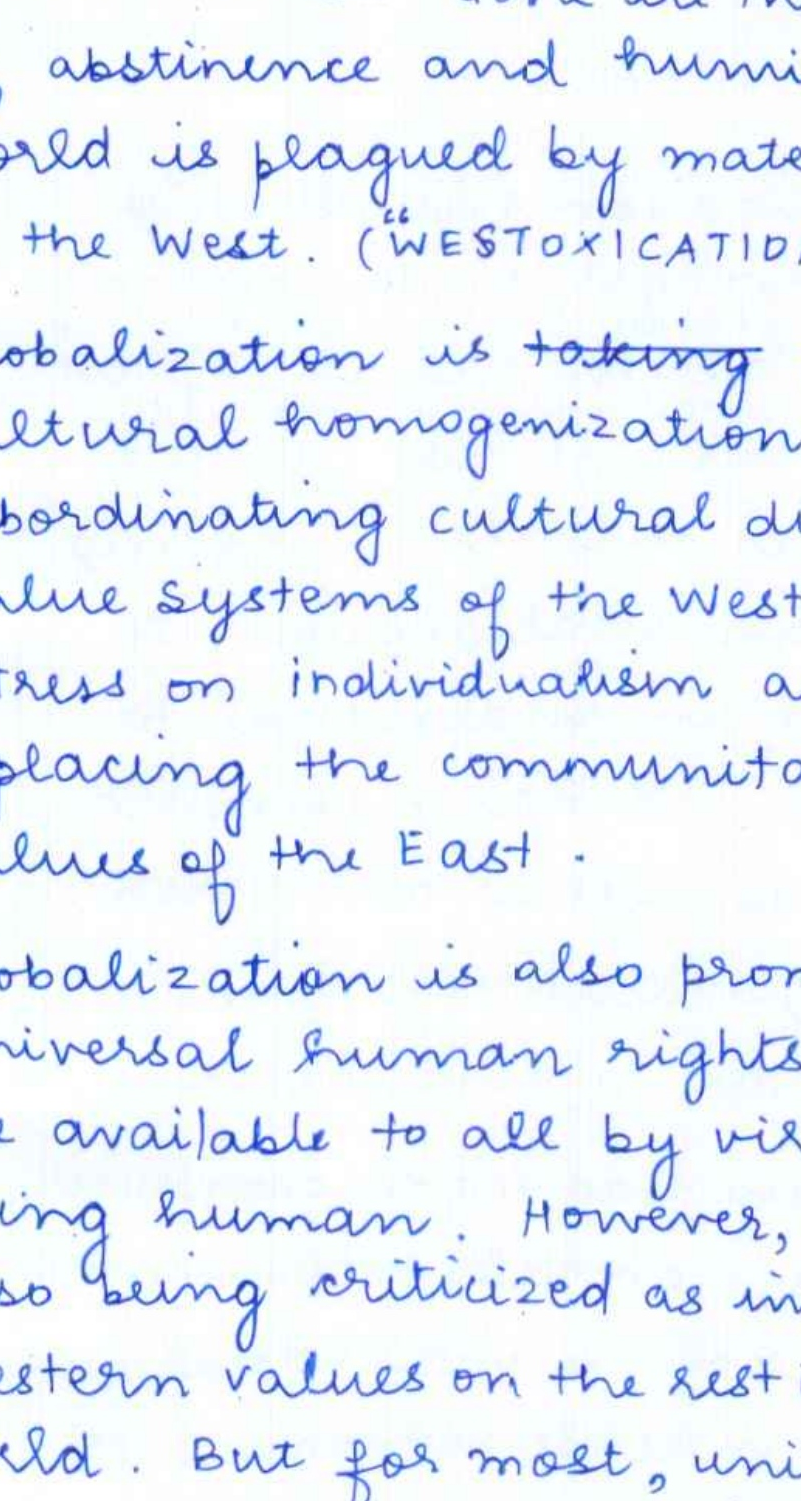 abstinence and humi
orld is plagued by mate
the West. ("WESTOXICATIO
obalization is taking
ltural homogenization
bordinating cultural di
alue systems of the West
tress on individualism a
placing the communita
lues of the East.
obalization is also prom
niversal human rights
e available to all by vir
ing human. However,
so being criticized as im
estern values on the rest
rld. But for most, uni